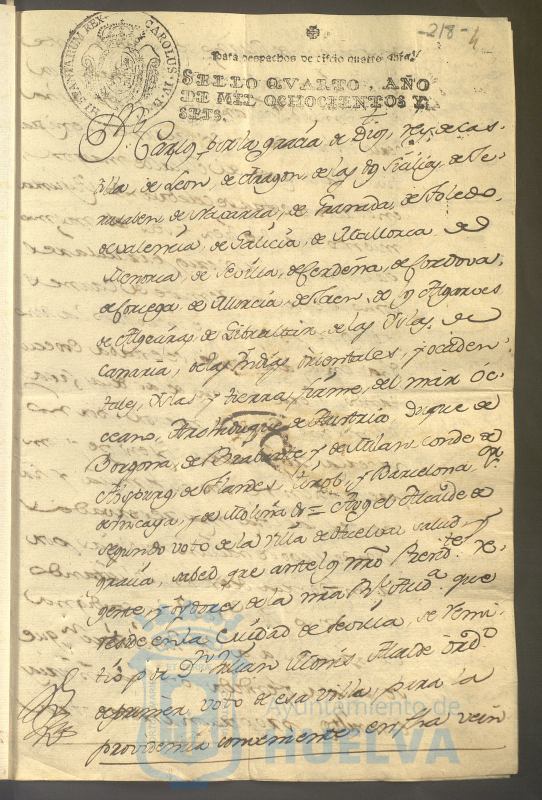 -218- 4
HISPANIARUM REX. CAROLUS IV D.G.
Para despachos de oficio quatro mrs.
SELLO QVARTO, AÑO
DE MIL OCHOCIENTOS Y
SEIS.
D. Carlos por la gracia de Dios, rey de Cas-
tilla, de Leon, de Aragon, de las dos Sicilias, de Je-
rusalen, de Navarra, de Granada, de Toledo,
de Valencia, de Galicia, de Mallorca, de
Menorca, de Sevilla, de Cerdeña, de Cordova,
de Corcega, de Murcia, de Jaen, de los Algarves
de Algeciras, de Gibraltar, de las Yslas, de
Canaria, de las Yndias orientales, y occiden-
tales, Yslas y tierra firme, del mar Oc-
ceano, Archiduque de Austria, Duque de
Borgoña, de Brabante y de Milan, Conde de
Abspurg, de Flandes, tirol, y Barcelona, Sr.
de Vizcaya, y de Molina &c = A vos el Alcalde de
segundo voto de la Villa de Huelva salud, y
gracia, saved que ante los nros Rexente. Re-
gente y oydores de la nra Rl. Auda. que
reside en la Ciudad de Sevilla, se remi-
tió por Dn. Julian Alcalde ord.o
de primer voto de esa villa, para la
providencia combeniente en fra. vein
Ayuntamiento de
HUELVA